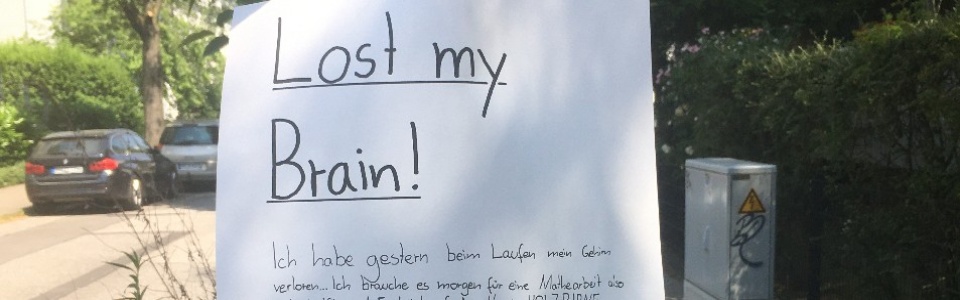 Lost my
Brain!
Ich habe gestern beim Laufen mein Gehirn
verloren... Ich brauche es morgen für eine Mathearbeit also
HOLZBIRNE